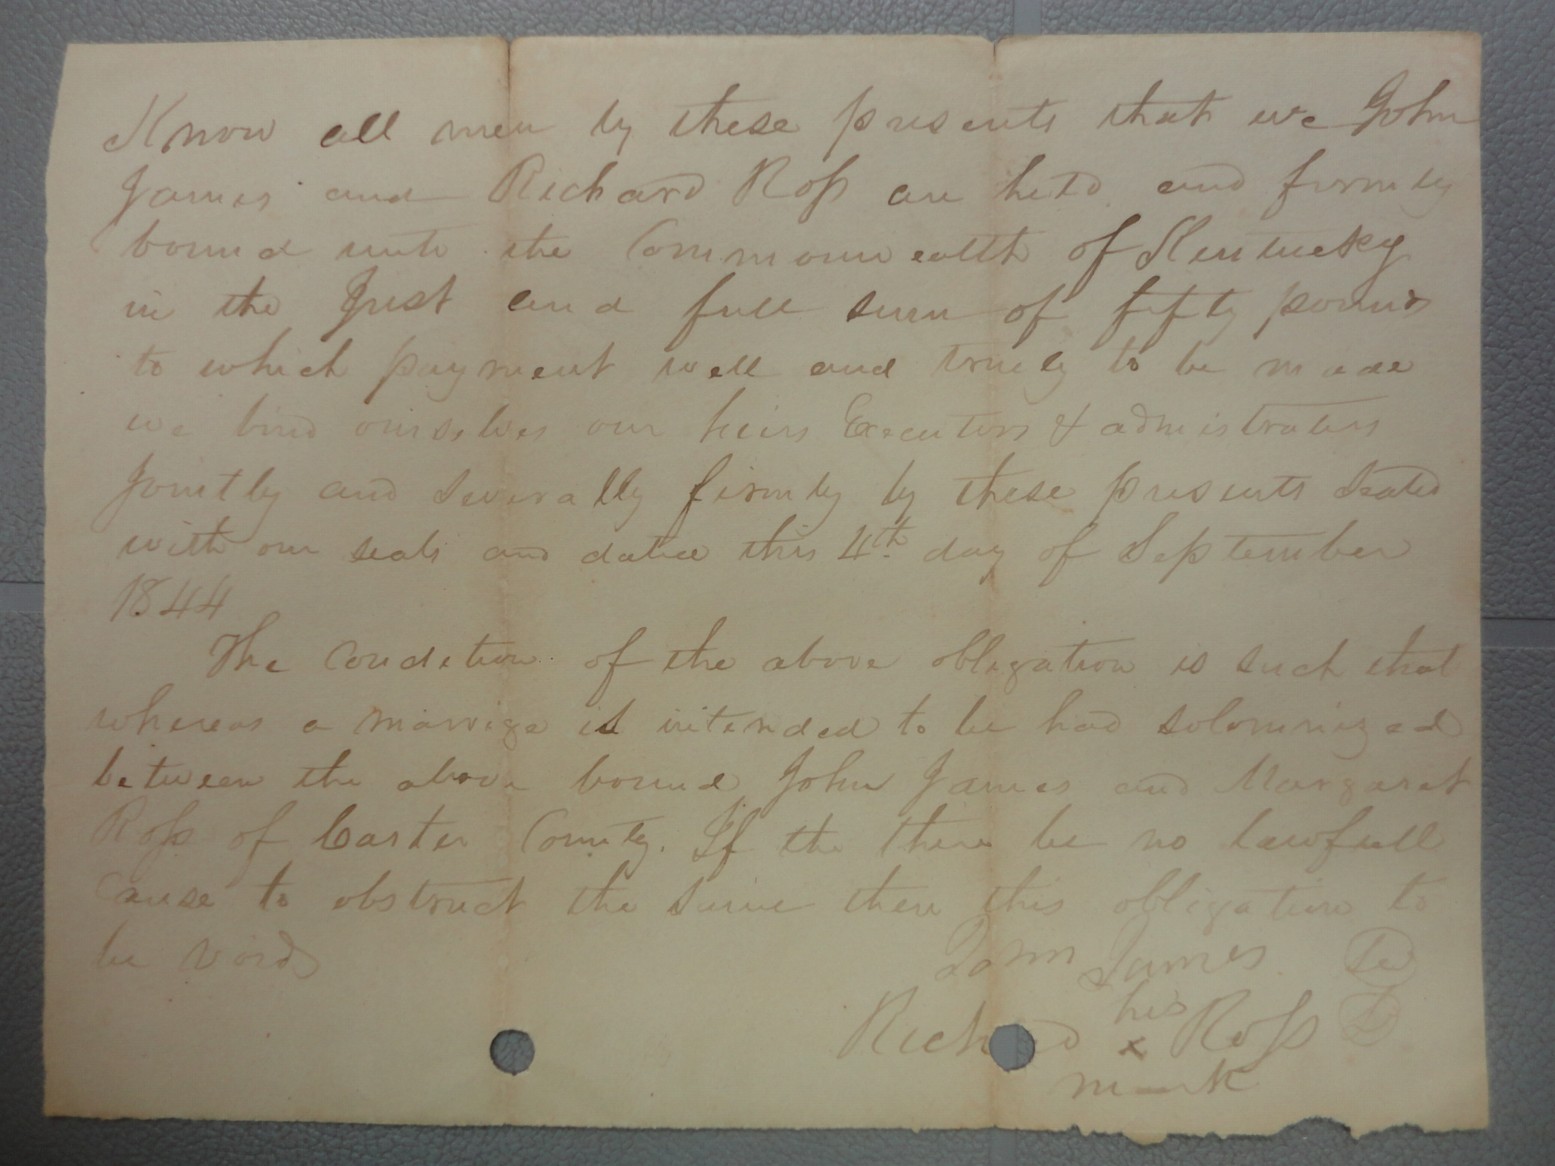 Know all men by these presents that we John
James and Richard Ross are held and firmly
bound unto the Commonwealth of Kentucky
in the Just and full sum of fifty pounds
to which payment well and truely to be made
we bind ourselves our heirs Executors & admistrators
Jointly and Severally firmly by these presents Sealed
with our seals and dated this 4th day of September
1844
The Condition of the above obligation is such that
whereas a marrige is intended to be had solomnized
between the above bound John James and Margaret
Ross of Carter County. If the there be no lawfull
cause to obstruct the same then this obligation to
be void
John James
his
Richard x Ross
mark